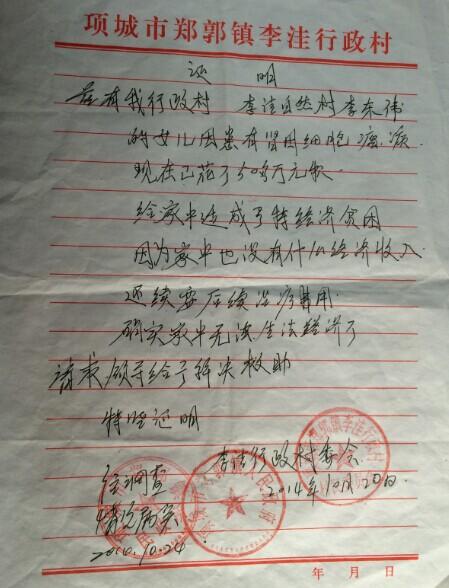 项城市郑郭镇李洼行政村
证 明
兹有我行政村 李洼自然村李东伟
的女儿因患有肾母细胞瘤病
现在已花了 万元钱.
给家中造成了特经济贫困
因为家中也没有什么经济收入.
还续要后续治疗费用.
确实家中无法生活 了
请求领导给予解决救助
特此证明
李洼行政村委会
2014年10月20日.
经调查
情况属实
2014.10.24.
年 月 日